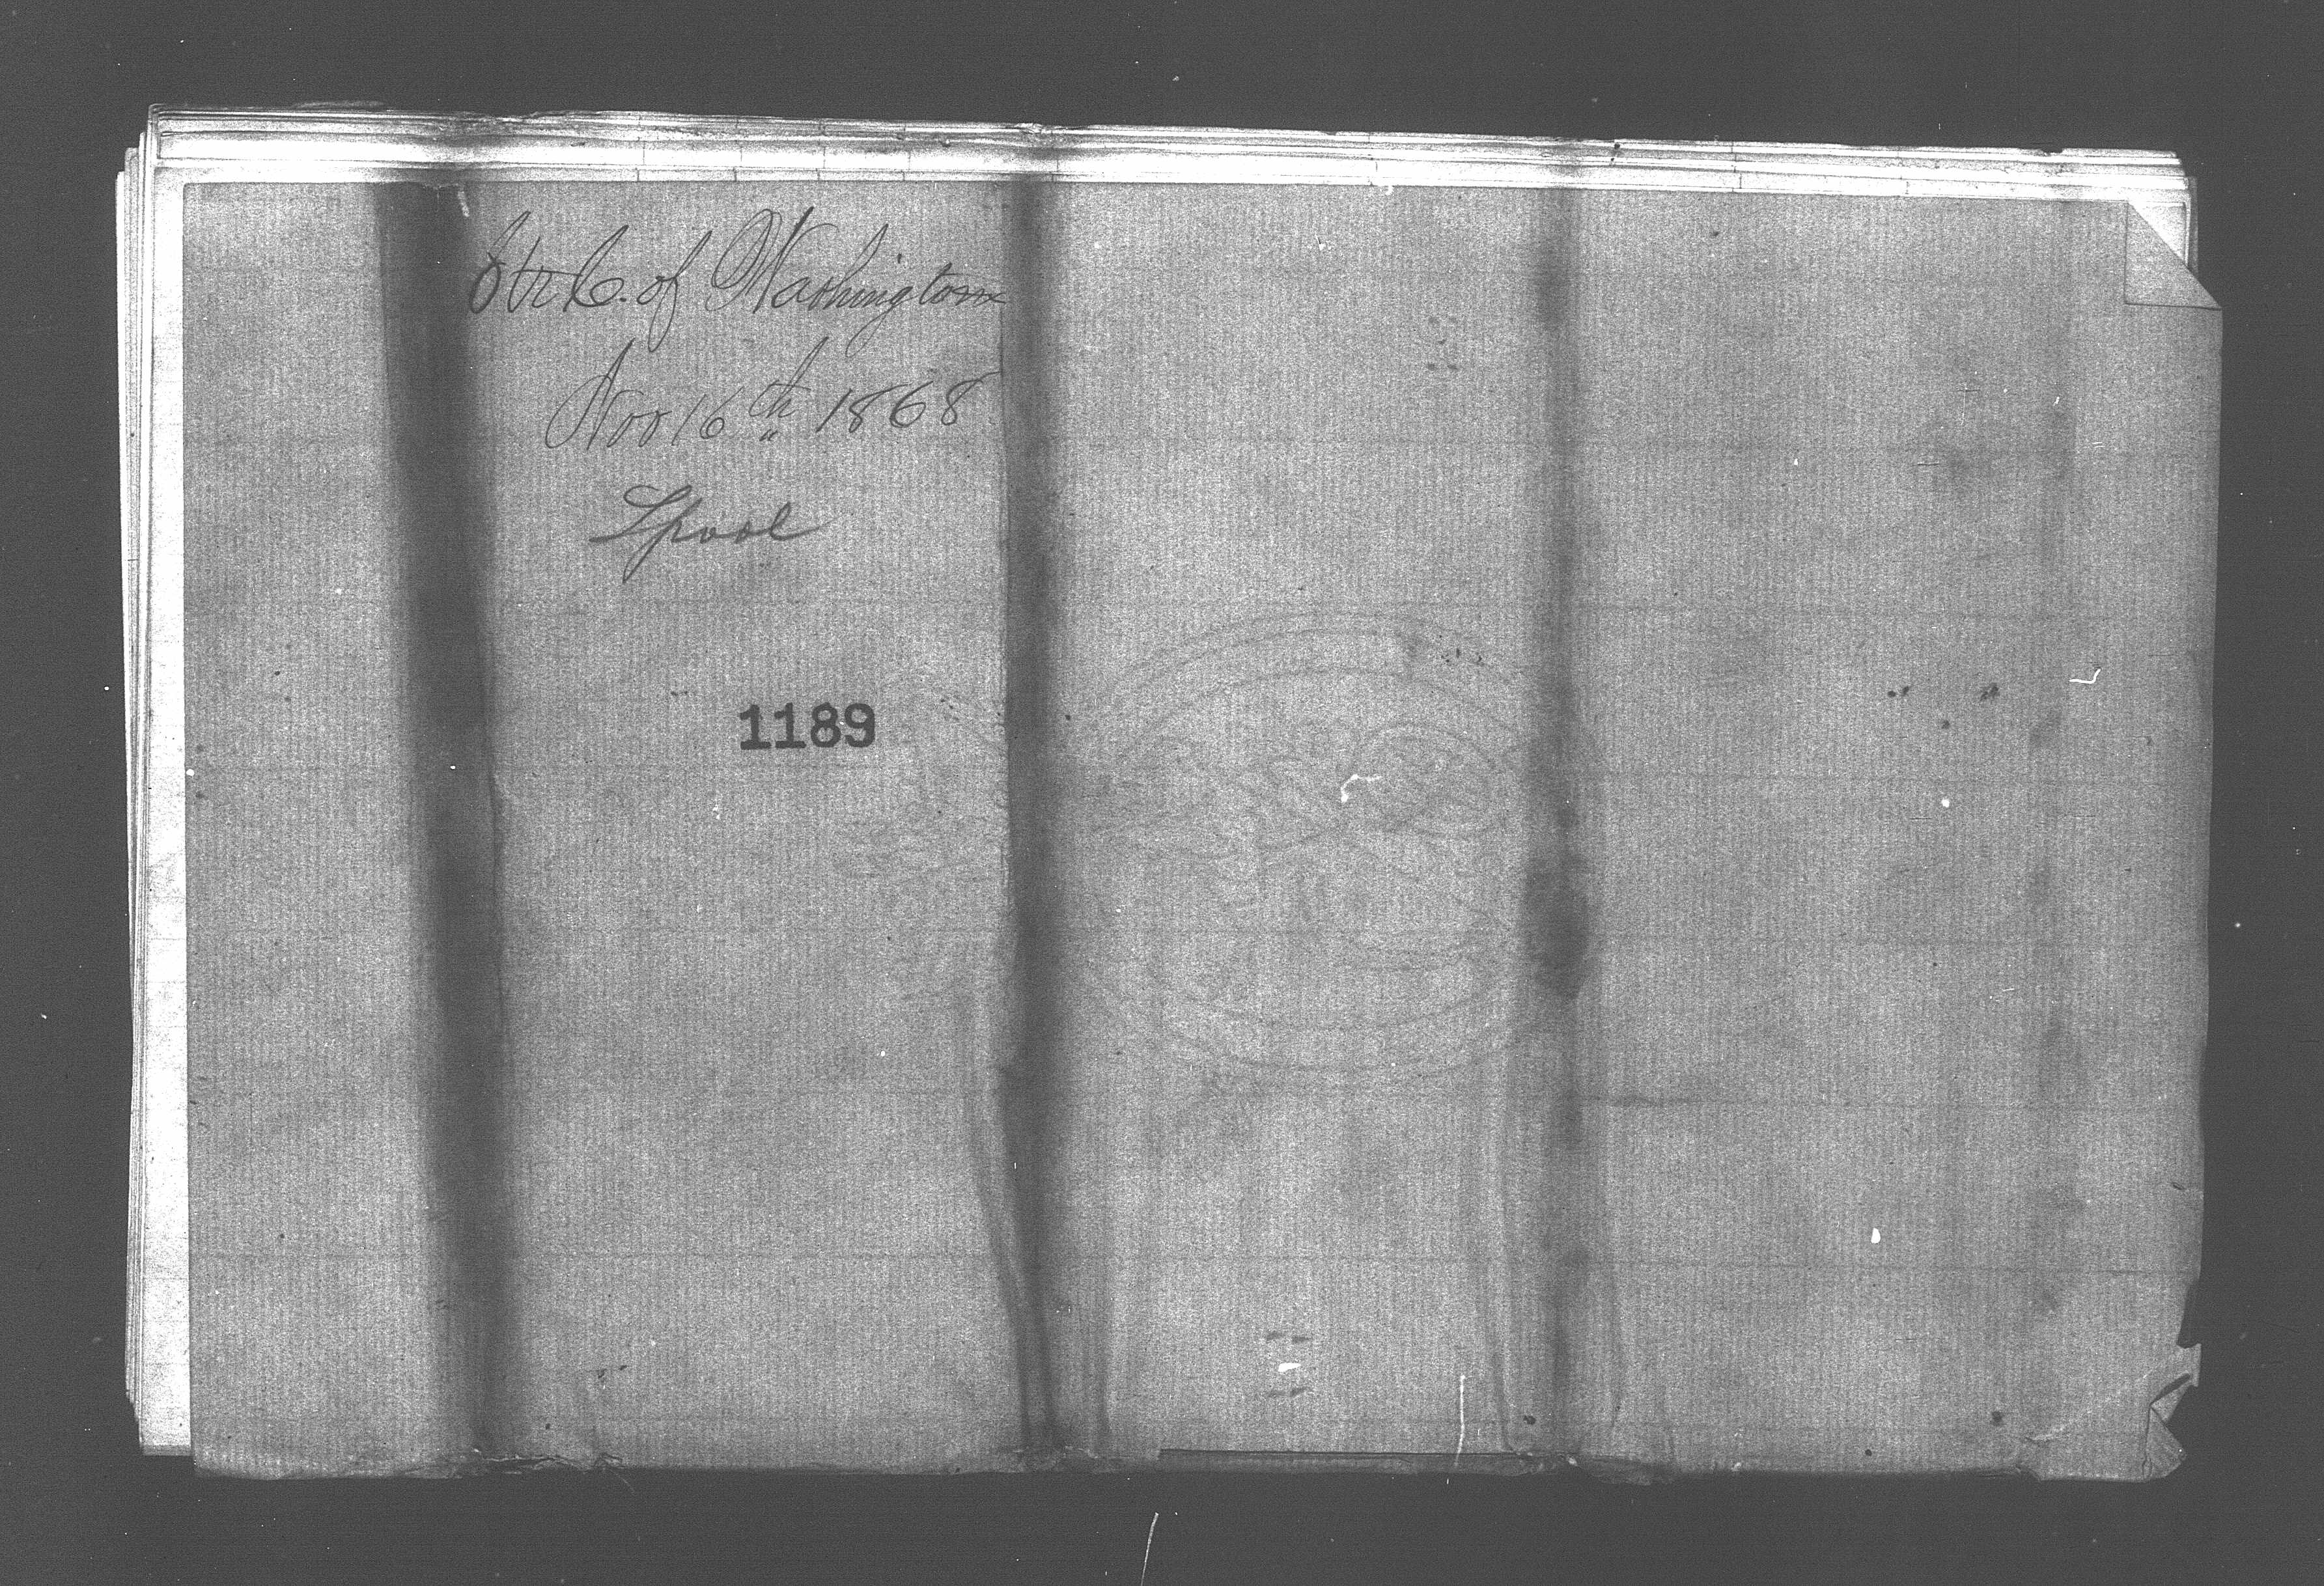 Str C. of Washington
Nov 16th 1868
Lpool
1189